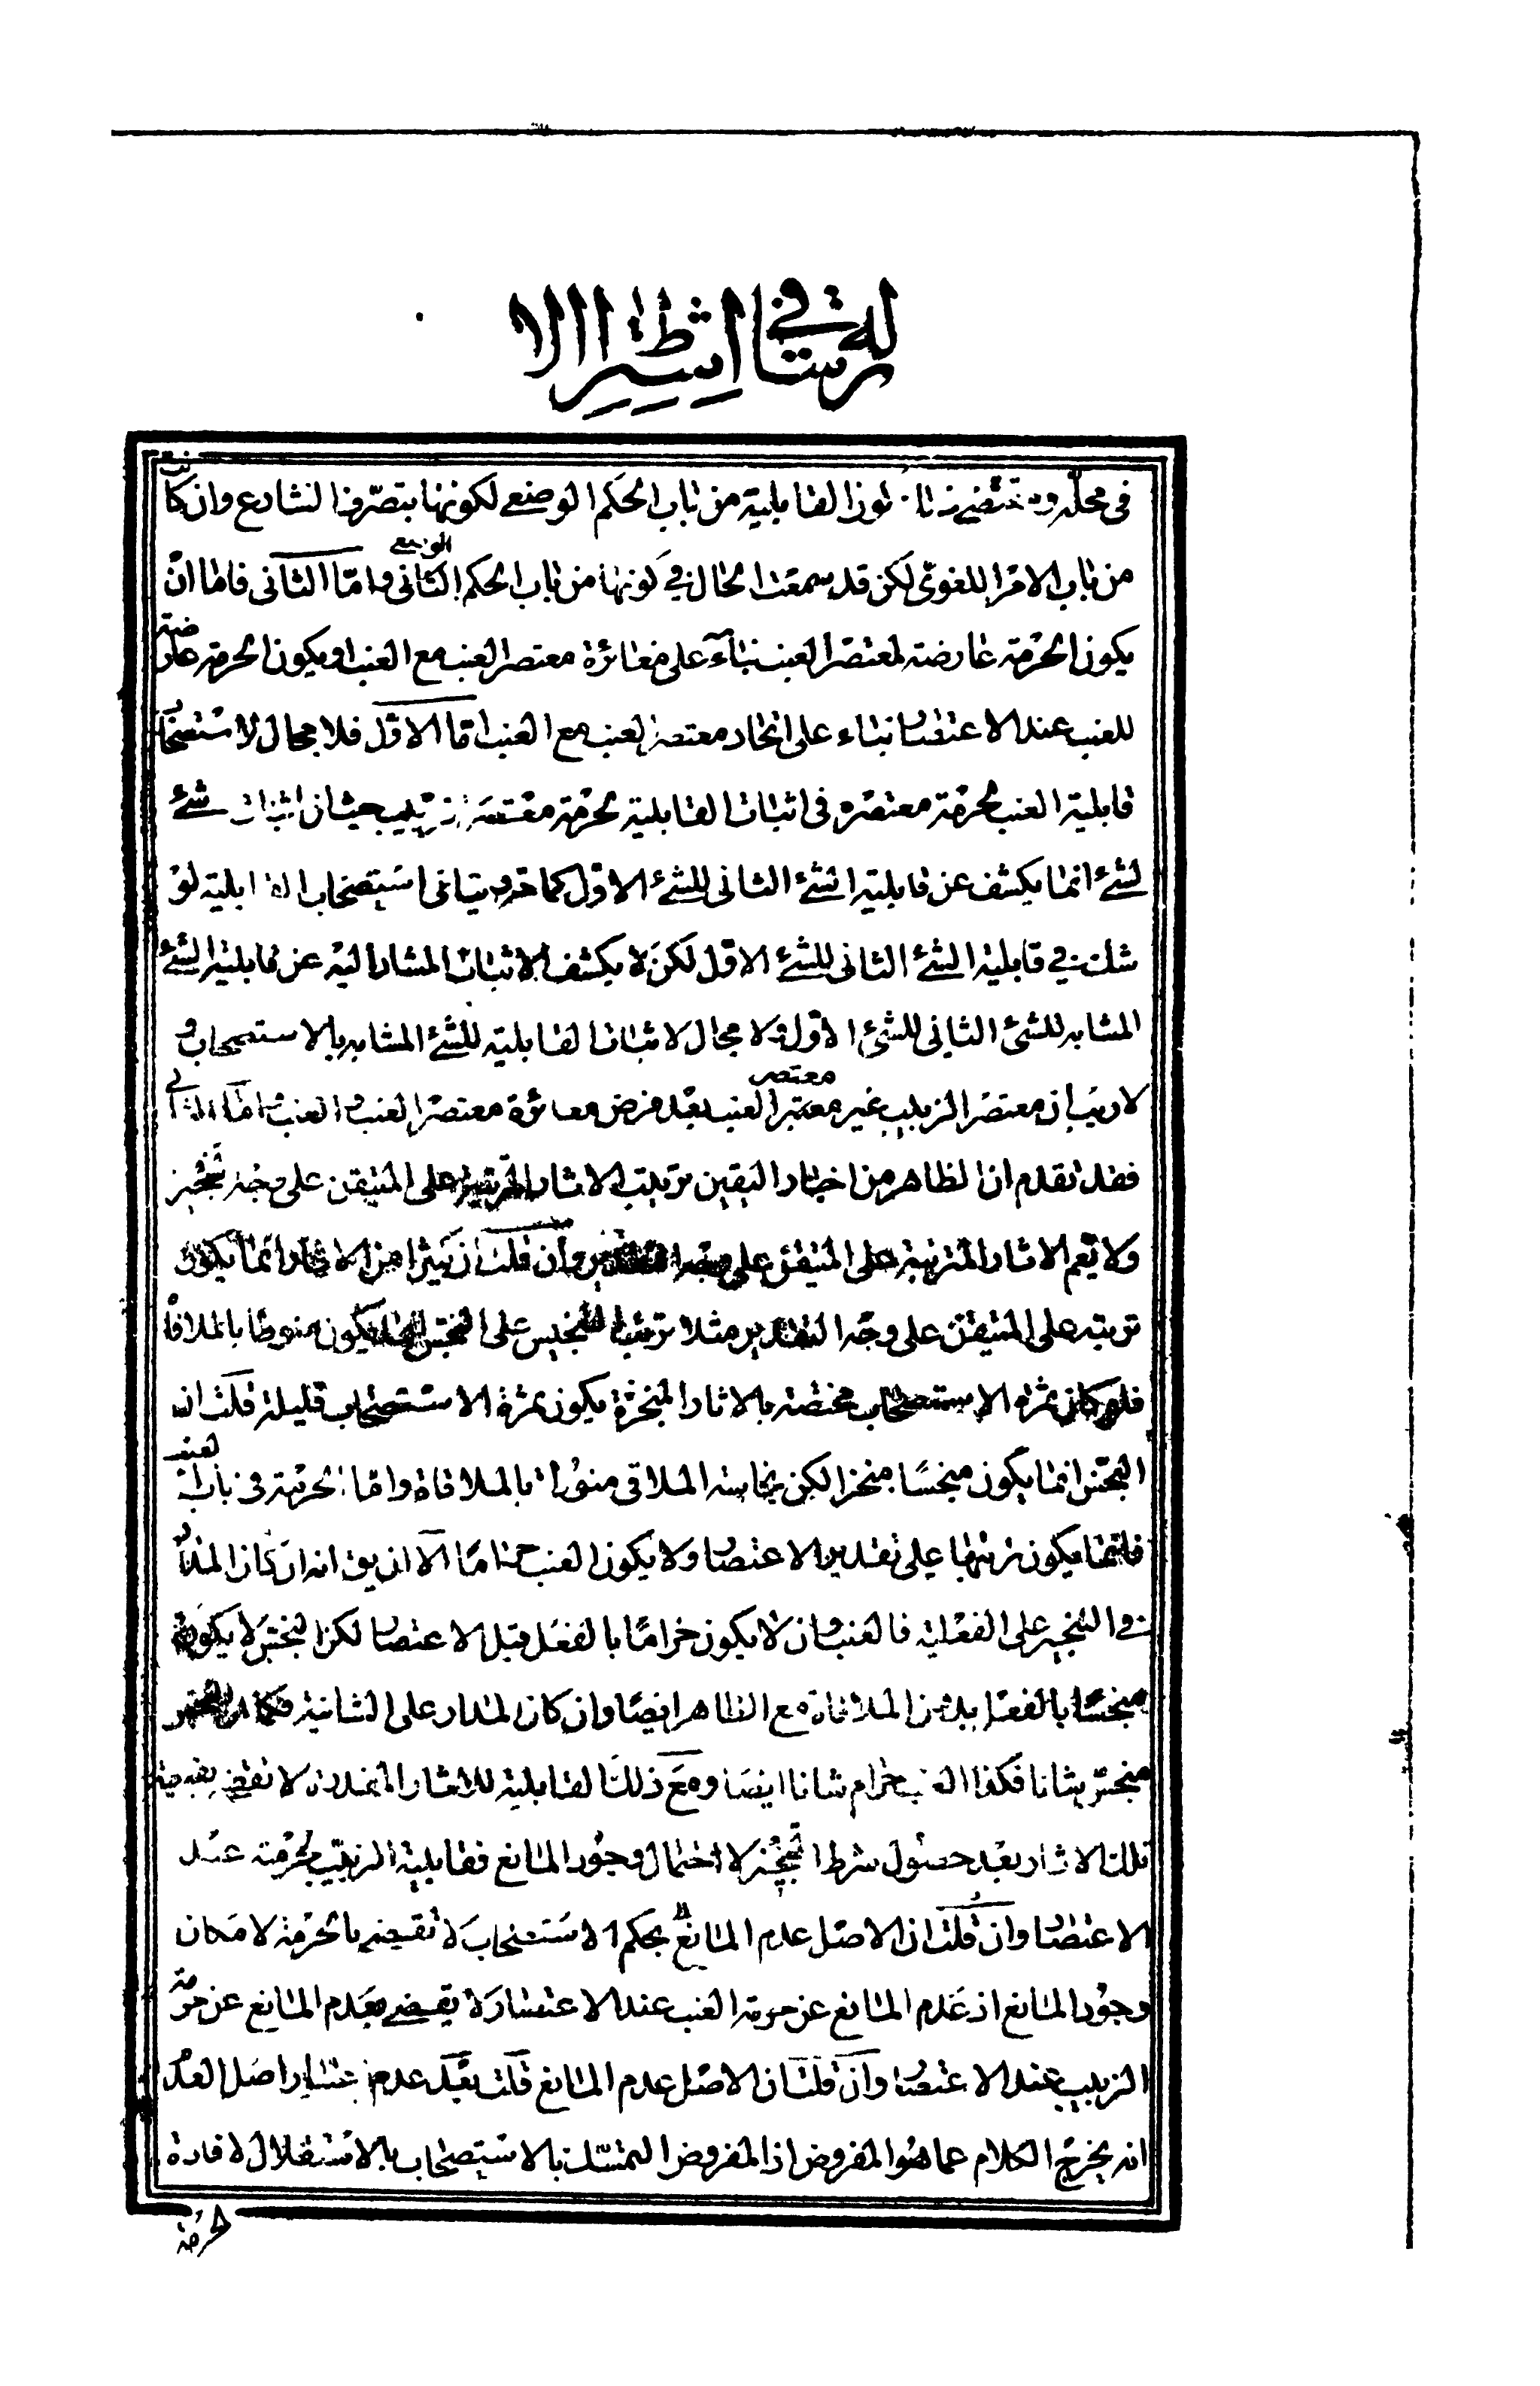 رسالة في اشتراط الا
في محله و كون القابلية من باب الحكم الوضعي لكونها بتصرف الشارع وان كانت
من باب الامر اللغوي لكن قد سمعت الحال في كونها من باب الحكم الوضعي الثاني واما الثاني فاما ان
يكون الحرمة عارضة لمعتصر العنب بناء على مغائرة معتصر العنب مع العنب او يكون الحرمة عارضة
للعنب عند الاعتصار بناء على اتحاد معتصر العنب مع العنب اما الاول فلا مجال لاستصحاب
قابلية العنب لحرمة معتصره في اثبات القابلية لحرمة معتصر زبيب حيث ان اثبات شئ
لشئ انما يكشف عن قابلية الشئ الثاني للشئ الاول كما مر ويتاتى استصحاب القابلية لو
شك في قابلية الشئ الثاني للشئ الاول لكن لا يكشف الاثبات المشار اليه عن قابلية الشئ
المشابه للشئ الثاني للشئ الاول ولا مجال لاثبات القابلية للشئ المشابه بالاستصحاب و
لا ريب ان معتصر الزبيب غير معتصر العنب بعد فرض مغائرة معتصر العنب و العنب واما الثاني
فقد تقدم ان الظاهر من اخبار اليقين ترتيب الاثار المترتبة على المتيقن على وجه التنجيز
ولا تعم الاثار المترتبة على المتيقن على وجه التقدير وان قلت ان كثيرا من الاثار انما يكون
ترتبه على المتيقن على وجه التقدير مثلا ترتب التنجيس على النجس انما يكون منوطا بالملاقاة
فلو كان ثمرة الاستصحاب مختصة بالاثار المنجزة يكون ثمرة الاستصحاب قليلة قلت ان
النجس انما يكون منجسا منجزا لكن نجاسة الملاقي منوطة بالملاقاة واما الحرمة في باب العنب
فانما يكون ترتبها على تقدير الاعتصار ولا يكون العنب حراما الا ان يق انه ان كان المدار
في التنجيز على الفعلية فالعنب وان لا يكون حراما بالفعل قبل الاعتصار لكن النجس لا يكون
منجسا بالفعل بدون الملاقاة مع الظاهر ايضا وان كان المدار على الشانية فكما ان النجس
منجس شانا فكذا العنب حرام شانا ايضا ومع ذلك القابلية للاثار المتعددة لا تقضي بفعلية
تلك الاثار بعد حصول شرط التنجيز لاحتمال وجود المانع فقابلية الزبيب لحرمته عند
الاعتصار وان قلت ان الاصل عدم المانع بحكم الاستصحاب لا تقضي بالحرمة لامكان
وجود المانع اذ عدم المانع عن حرمة العنب عند الاعتصار لا يقضي بعدم المانع عن حرمة
الزبيب عند الاعتصار وان قلت ان الاصل عدم المانع قلت بعد عدم اعتبار اصل العدم
انه يخرج الكلام عما هو المفروض اذ المفروض التمسك بالاستصحاب بالاستقلال لافادة
الحرمة